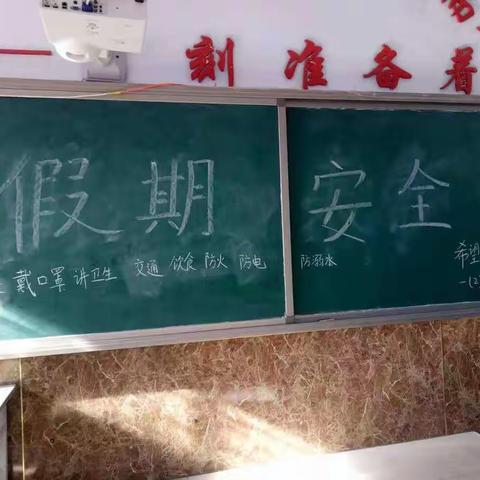 刻准备着
假期安全
戴口罩 讲卫生 交通 饮食 防火 防电 防溺水 希望
一(2